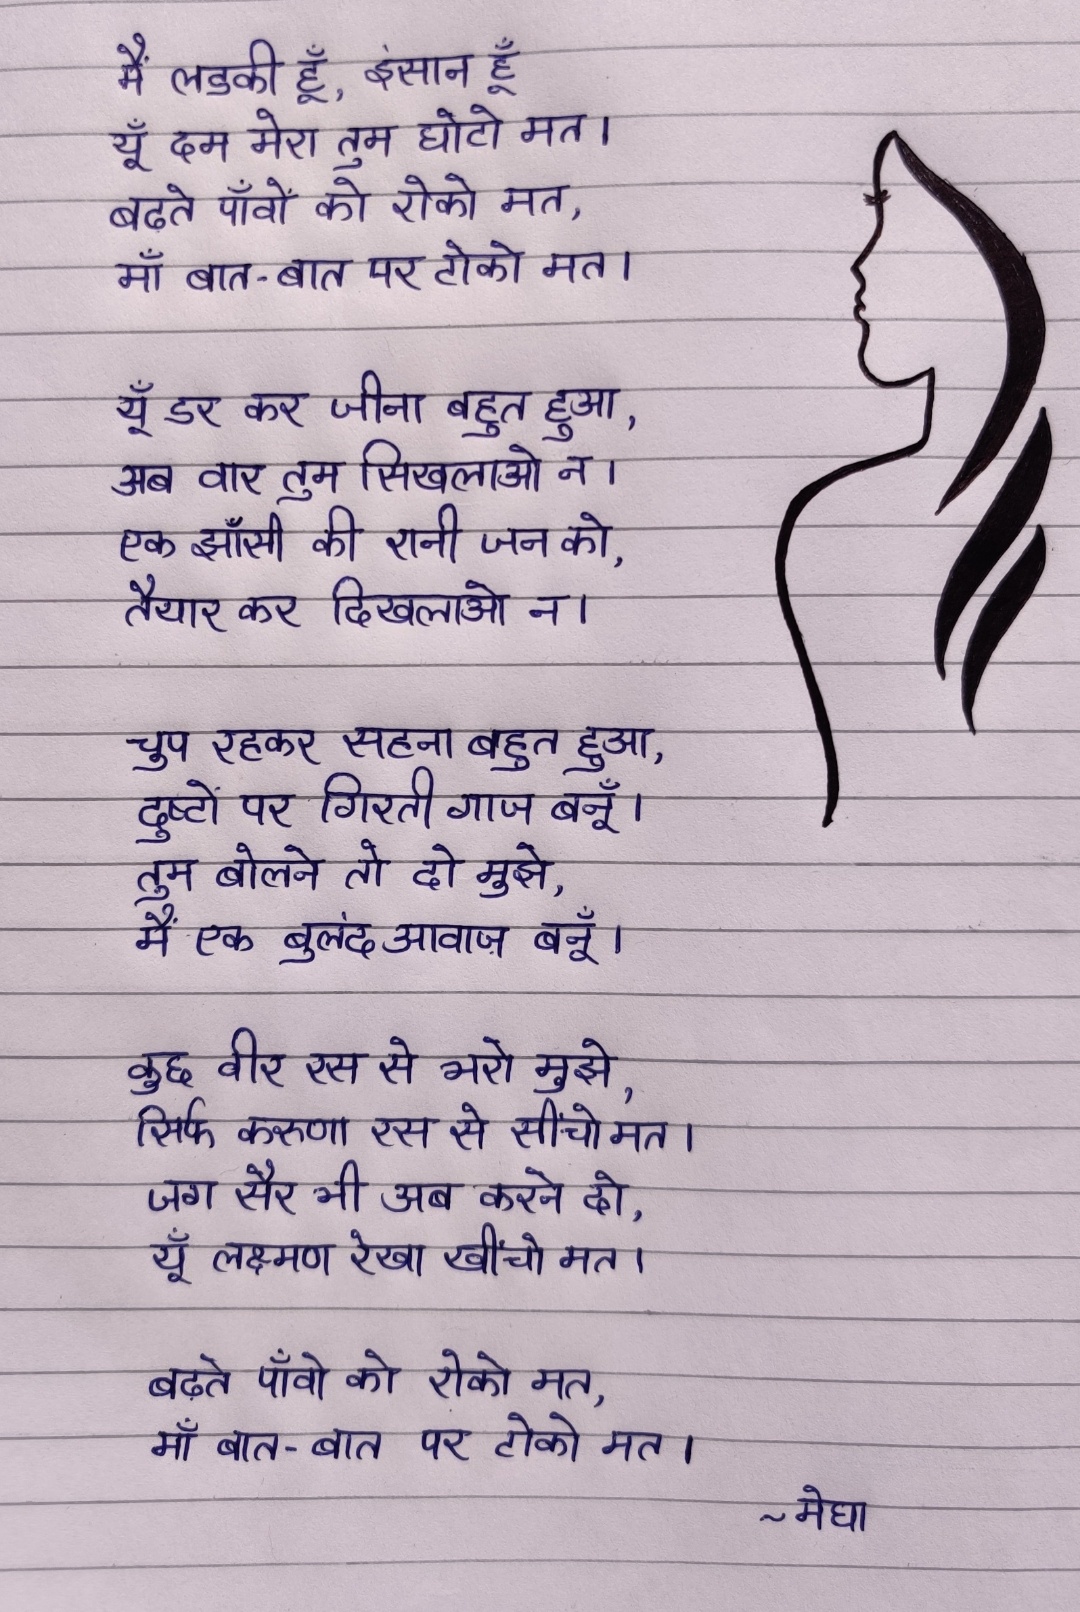 मैं लडकी हूँ, इंसान हूँ
यूँ दम मेरा तुम घोटो मत।
बढ़ते पाँवों को रोको मत,
माँ बात-बात पर टोको मत।
यूँ डर कर जीना बहुत हुआ,
अब वार तुम सिखलाओ न।
एक झाँसी की रानी जन को,
तैयार कर दिखलाओ न।
चुप रहकर सहना बहुत हुआ,
दुष्टों पर गिरती गाज बनूँ।
तुम बोलने तो दो मुझे,
मैं एक बुलंद आवाज़ बनूँ।
कुछ वीर रस से भरो मुझे,
सिर्फ करुणा रस से सींचो मत।
जग सैर भी अब करने दो,
यूँ लक्ष्मण रेखा खींचो मत।
बढ़ते पाँवो को रोको मत,
माँ बात-बात पर टोको मत।
~मेघा